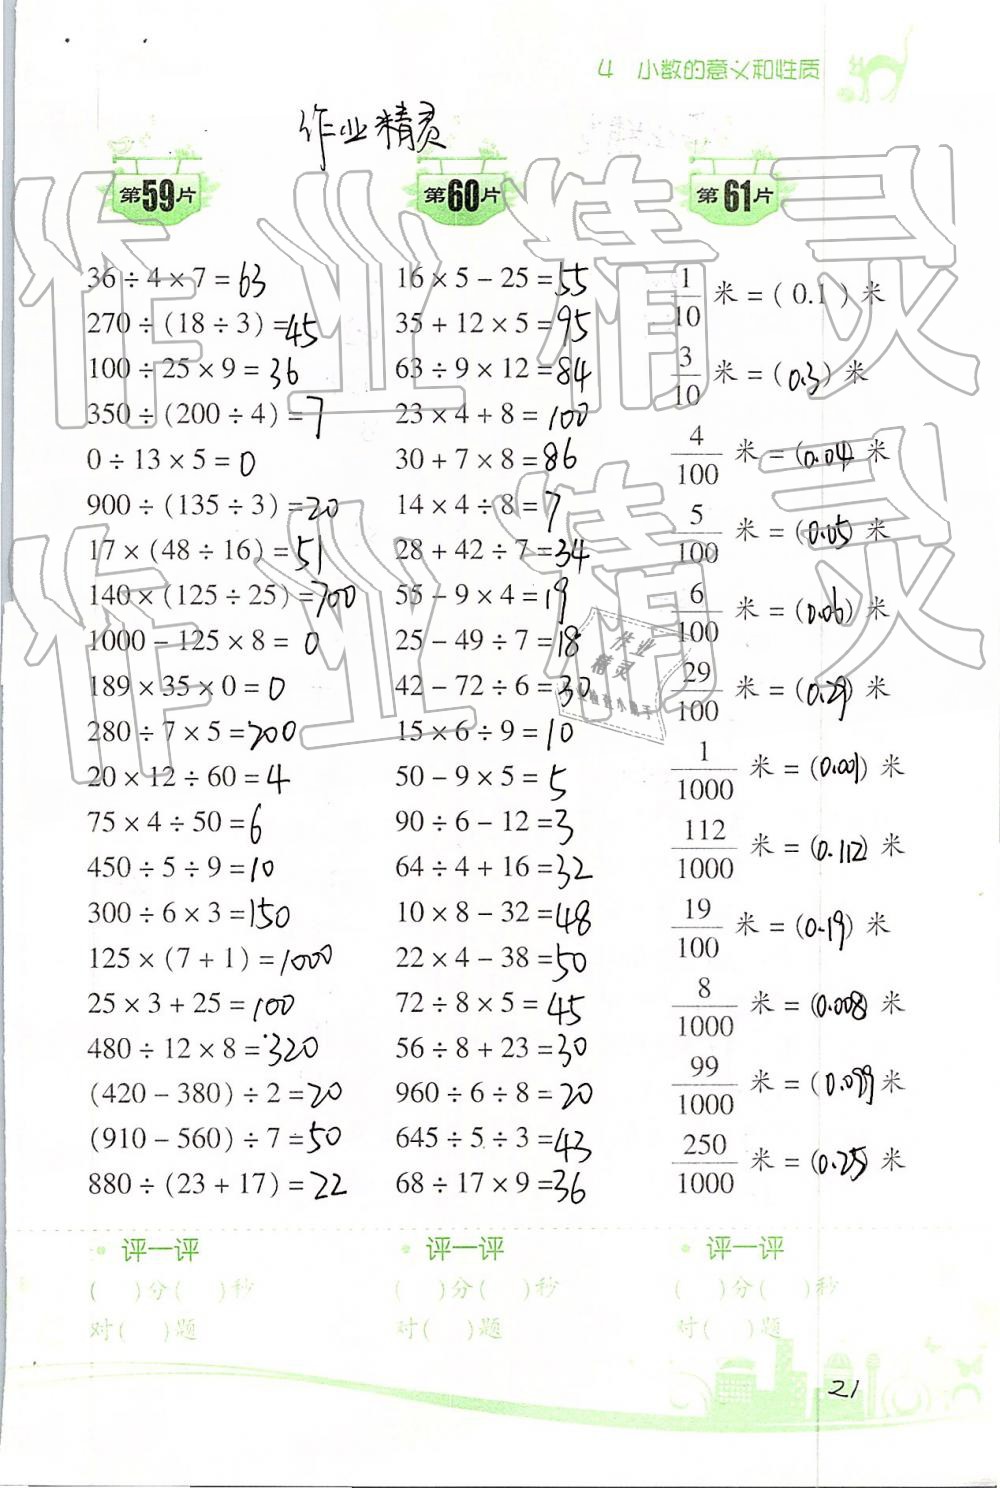 4 小数的意义和性质
作业精灵
第59片
36÷4×7=63
270÷(18÷3)=45
100÷25×9=36
350÷(200÷4)=7
0÷13×5=0
900÷(135÷3)=20
17×(48÷16)=51
140×(125÷25)=700
1000-125×8=0
189×35×0=0
280÷7×5=200
20×12÷60=4
75×4÷50=6
450÷5÷9=10
300÷6×3=150
125×(7+1)=1000
25×3+25=100
480÷12×8=320
(420-380)÷2=20
(910-560)÷7=50
880÷(23+17)=22
评一评
( )分( )秒
对( )题
第60片
16×5-25=55
35+12×5=95
63÷9×12=84
23×4+8=100
30+7×8=86
14×4÷8=7
28+42÷7=34
55-9×4=19
25-49÷7=18
42-72÷6=30
15×6÷9=10
50-9×5=5
90÷6-12=3
64÷4+16=32
10×8-32=48
22×4-38=50
72÷8×5=45
56÷8+23=30
960÷6÷8=20
645÷5÷3=43
68÷17×9=36
评一评
( )分( )秒
对( )题
第61片
1/10米=(0.1)米
3/10米=(0.3)米
4/100米=(0.04)米
5/100米=(0.05)米
6/100米=(0.06)米
29/100米=(0.29)米
1/1000米=(0.001)米
112/1000米=(0.112)米
19/100米=(0.19)米
8/1000米=(0.008)米
99/1000米=(0.099)米
250/1000米=(0.25)米
评一评
( )分( )秒
对( )题
21
作业精灵
作业精灵
作业
精灵